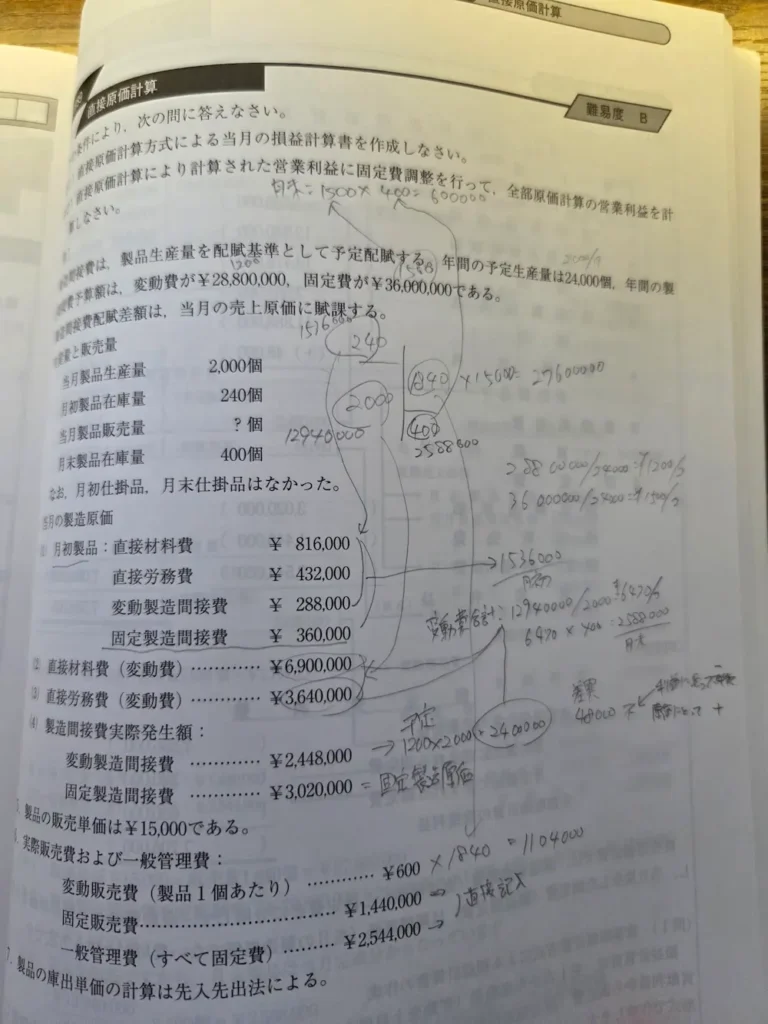 直接原価計算
直接原価計算
難易度 B
条件により，次の問に答えなさい。
直接原価計算方式による当月の損益計算書を作成しなさい。
直接原価計算により計算された営業利益に固定費調整を行って，全部原価計算の営業利益を計
しなさい。
月末=1500×400=600000
間接費は，製品生産量を配賦基準として予定配賦する。年間の予定生産量は24,000個，年間の製
1200
接費予算額は，変動費が¥28,800,000，固定費が¥36,000,000である。
造間接費配賦差額は，当月の売上原価に賦課する。
1536000
産量と販売量
240
当月製品生産量 2,000個
1840 ×15000=27600000
月初製品在庫量 240個
2000
当月製品販売量 ？個
400
12940000
2588000
月末製品在庫量 400個
28800000/24000=¥1200/コ
なお，月初仕掛品，月末仕掛品はなかった。
36000000/24000=¥1500/コ
当月の製造原価
月初製品：直接材料費 ¥ 816,000
1536000
直接労務費 ¥ 432,000
月初
変動製造間接費 ¥ 288,000
変動費合計：12940000/2000=¥6470/コ
固定製造間接費 ¥ 360,000
6470×400=2588000
月末
(2) 直接材料費（変動費）………… ¥6,900,000
(3) 直接労務費（変動費）………… ¥3,640,000
差異
48000
(4) 製造間接費実際発生額：
予定
1200×2000=2400000
変動製造間接費 ¥2,448,000
固定製造間接費 ¥3,020,000 =固定製造原価
製品の販売単価は¥15,000である。
実際販売費および一般管理費：
変動販売費（製品１個あたり）………… ¥600 ×1840 =1104000
固定販売費………………………… ¥1,440,000
直接記入
一般管理費（すべて固定費）……… ¥2,544,000
7. 製品の庫出単価の計算は先入先出法による。